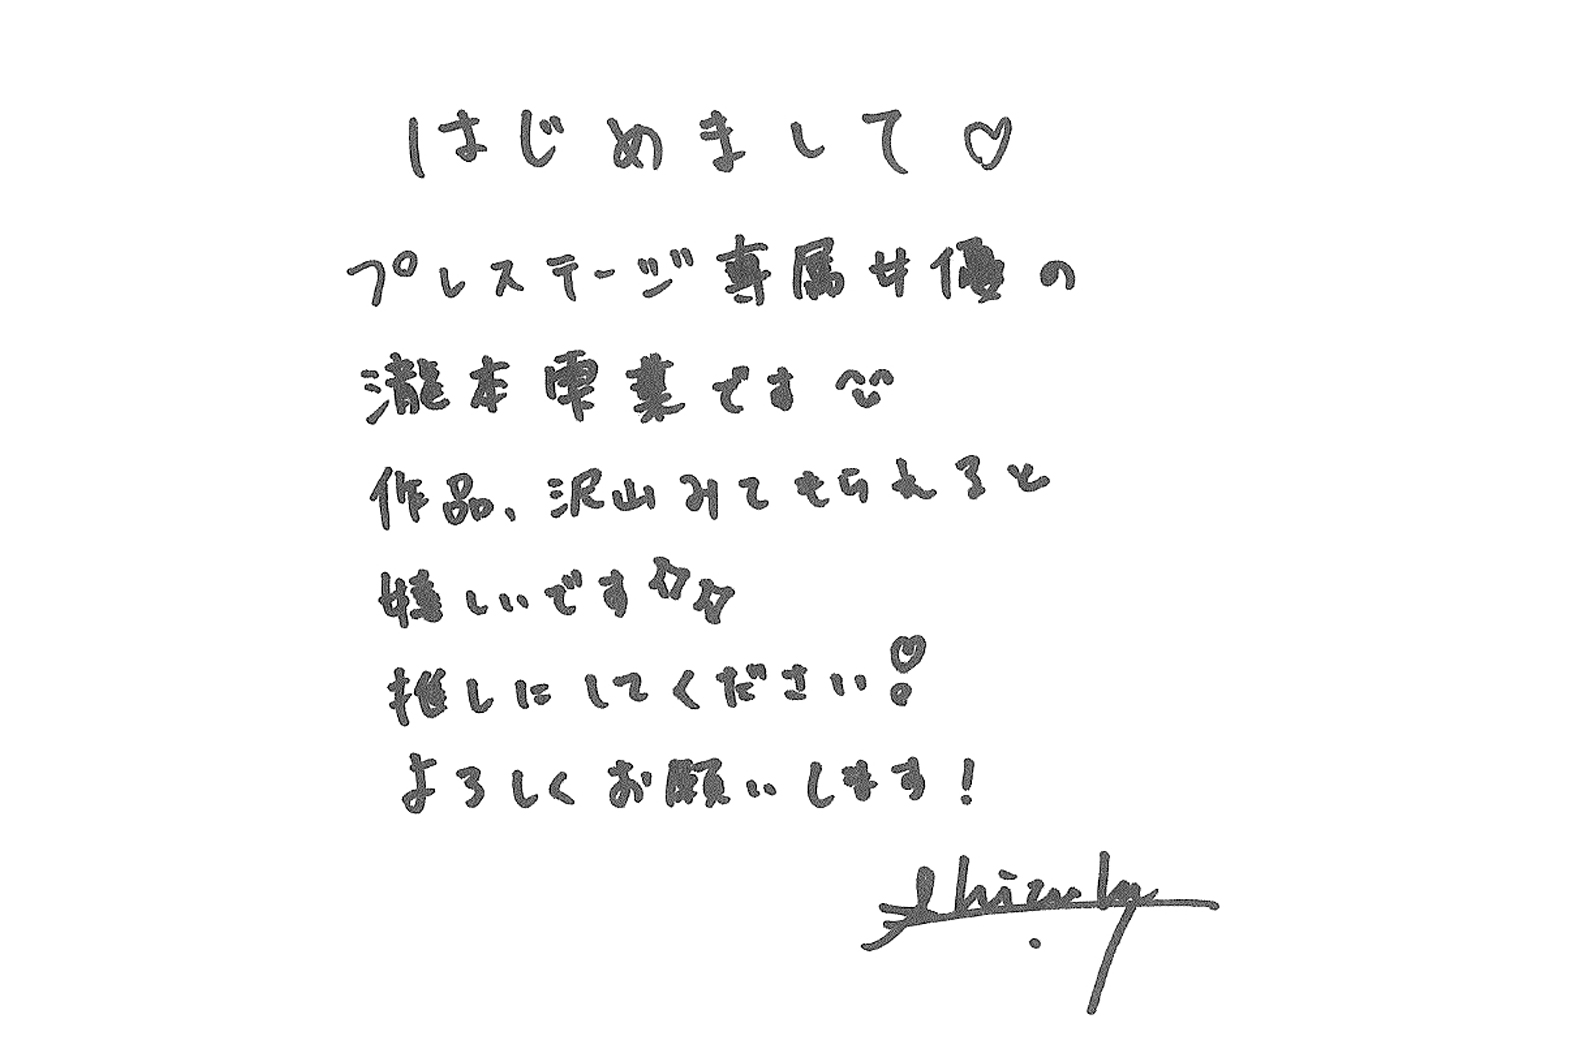 はじめまして♡
プレステージ専属女優の
瀧本雫葉です
作品、沢山みてもらえると
嬉しいです
推しにしてください
よろしくお願いします!